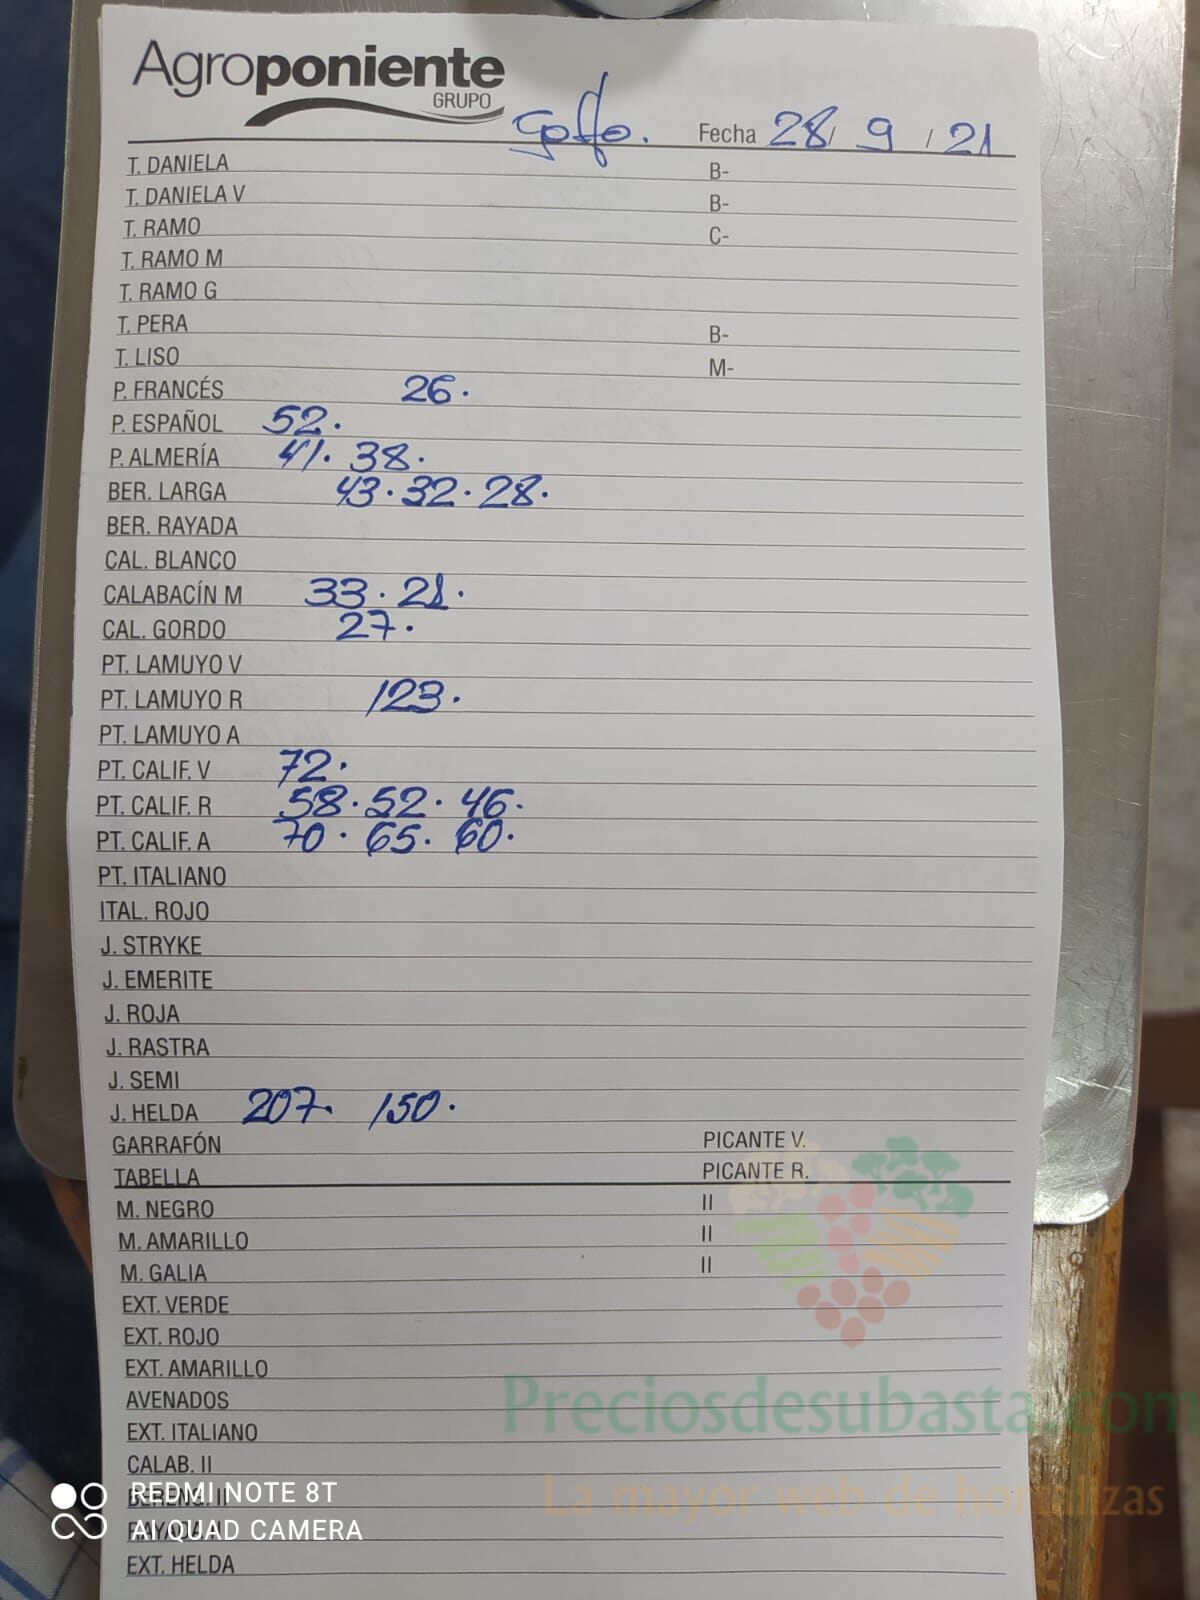 Agroponiente
GRUPO
Golfo. Fecha 28 / 9 / 21
T. DANIELA B-
T. DANIELA V B-
T. RAMO C-
T. RAMO M
T. RAMO G
T. PERA B-
T. LISO M-
P. FRANCÉS 26.
P. ESPAÑOL 52.
P. ALMERÍA 41. 38.
BER. LARGA 43. 32. 28.
BER. RAYADA
CAL. BLANCO
CALABACÍN M 33. 21.
CAL. GORDO 27.
PT. LAMUYO V
PT. LAMUYO R 123.
PT. LAMUYO A
PT. CALIF. V 72.
PT. CALIF. R 58. 52. 46.
PT. CALIF. A 70. 65. 60.
PT. ITALIANO
ITAL. ROJO
J. STRYKE
J. EMERITE
J. ROJA
J. RASTRA
J. SEMI
J. HELDA 207. 150.
GARRAFÓN PICANTE V.
TABELLA PICANTE R.
M. NEGRO II
M. AMARILLO II
M. GALIA II
EXT. VERDE
EXT. ROJO
EXT. AMARILLO
AVENADOS
Preciosdesubasta.com
EXT. ITALIANO
CALAB. II
BERENG. II
REDMI NOTE 8T
La mayor web de hortalizas
AI QUAD CAMERA
EXT. HELDA